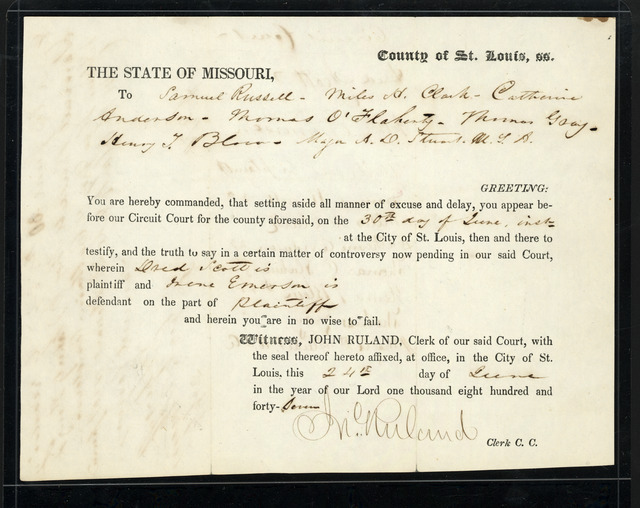 County of St. Louis, ss.
THE STATE OF MISSOURI,
To Samuel Russell - Miles H. Clark - Catherine
Anderson - Thomas O'Flaherty - Thomas Gray -
Henry T Blow - Major A. D. Stuart U. S. A.
GREETING:
You are hereby commanded, that setting aside all manner of excuse and delay, you appear be-
fore our Circuit Court for the county aforesaid, on the 30th day of June, inst-
at the City of St. Louis, then and there to
testify, and the truth to say in a certain matter of controversy now pending in our said Court,
wherein Dred Scott is
plaintiff and Irene Emerson is
defendant on the part of Plaintiff
and herein you are in no wise to fail.
Witness, JOHN RULAND, Clerk of our said Court, with
the seal thereof hereto affixed, at office, in the City of St.
Louis, this 24th day of June
in the year of our Lord one thousand eight hundred and
forty-Seven
Jno Ruland
Clerk C. C.